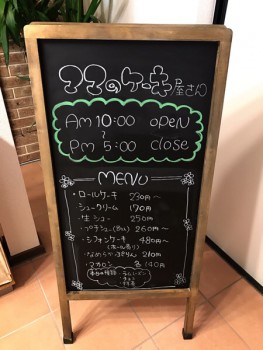 ママのケーキ屋さん
Am 10:00 open
〜
Pm 5:00 close
MENU
・ロールケーキ 230円〜
・シュークリーム 170円
・生シュー 250円
・プチシュー 260円〜
・シフォンケーキ 480円〜
(ホール有り)
・なめらかぷりん 210円
・マカロン 各140円